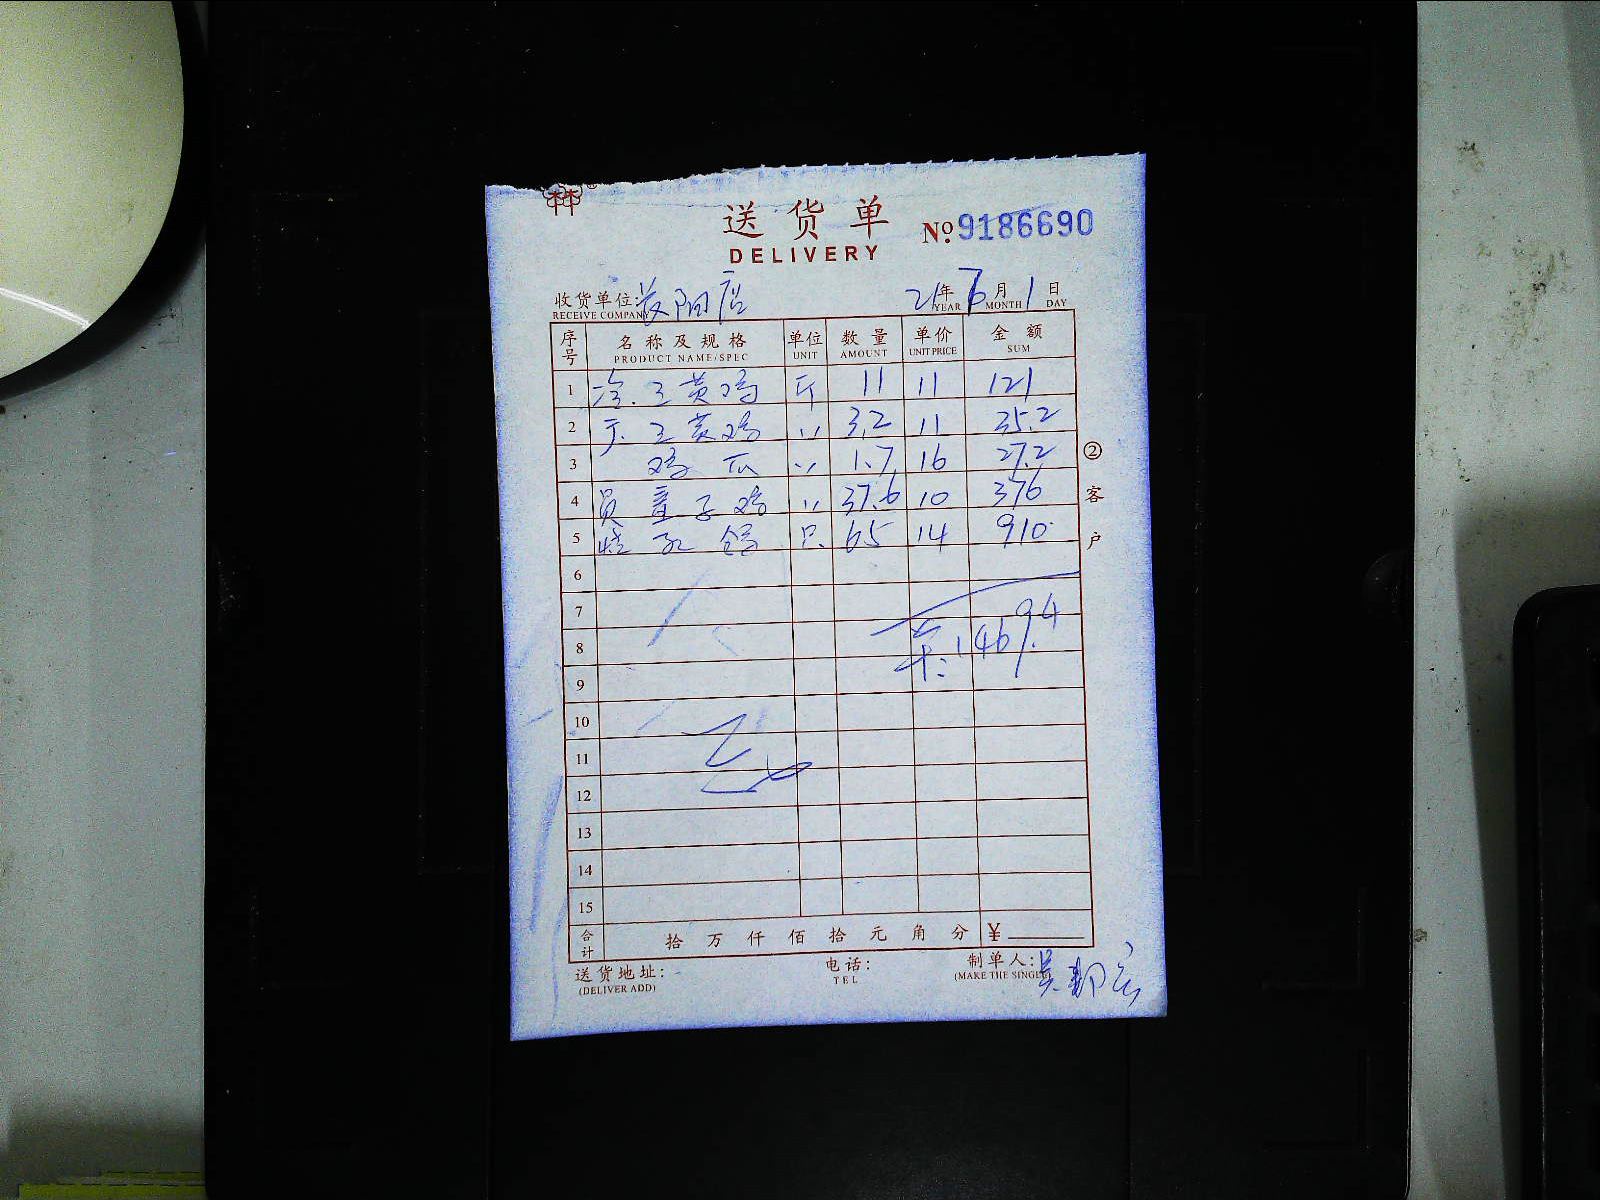 林
送货单
№ 9186690
DELIVERY
收货单位: 阳店 21年 6月 1日
RECEIVE COMPANY YEAR MONTH DAY
序号 名称及规格 单位 数量 单价 金额
PRODUCT NAME/SPEC UNIT AMOUNT UNIT PRICE SUM
1 冷.三黄鸡 斤 11 11 121
2 于.三黄鸡 〃 3.2 11 35.2
3 鸡爪 〃 1.7 16 27.2
4 员 童子鸡 〃 37.6 10 376
5 烧乳鸽 只 65 14 910
6
7
8 1469.4
9
10
11
12
13
14
15
合计 拾 万 仟 佰 拾 元 角 分 ¥
② 客户
送货地址: 电话: 制单人: 吴
(DELIVER ADD) TEL (MAKE THE SINGLE)